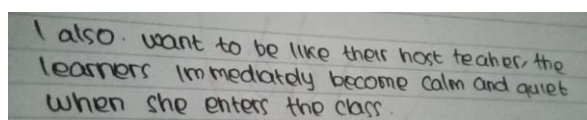 I also. want to be like their host teaher, the
learners immediately become calm and quiet
when she enters the class.